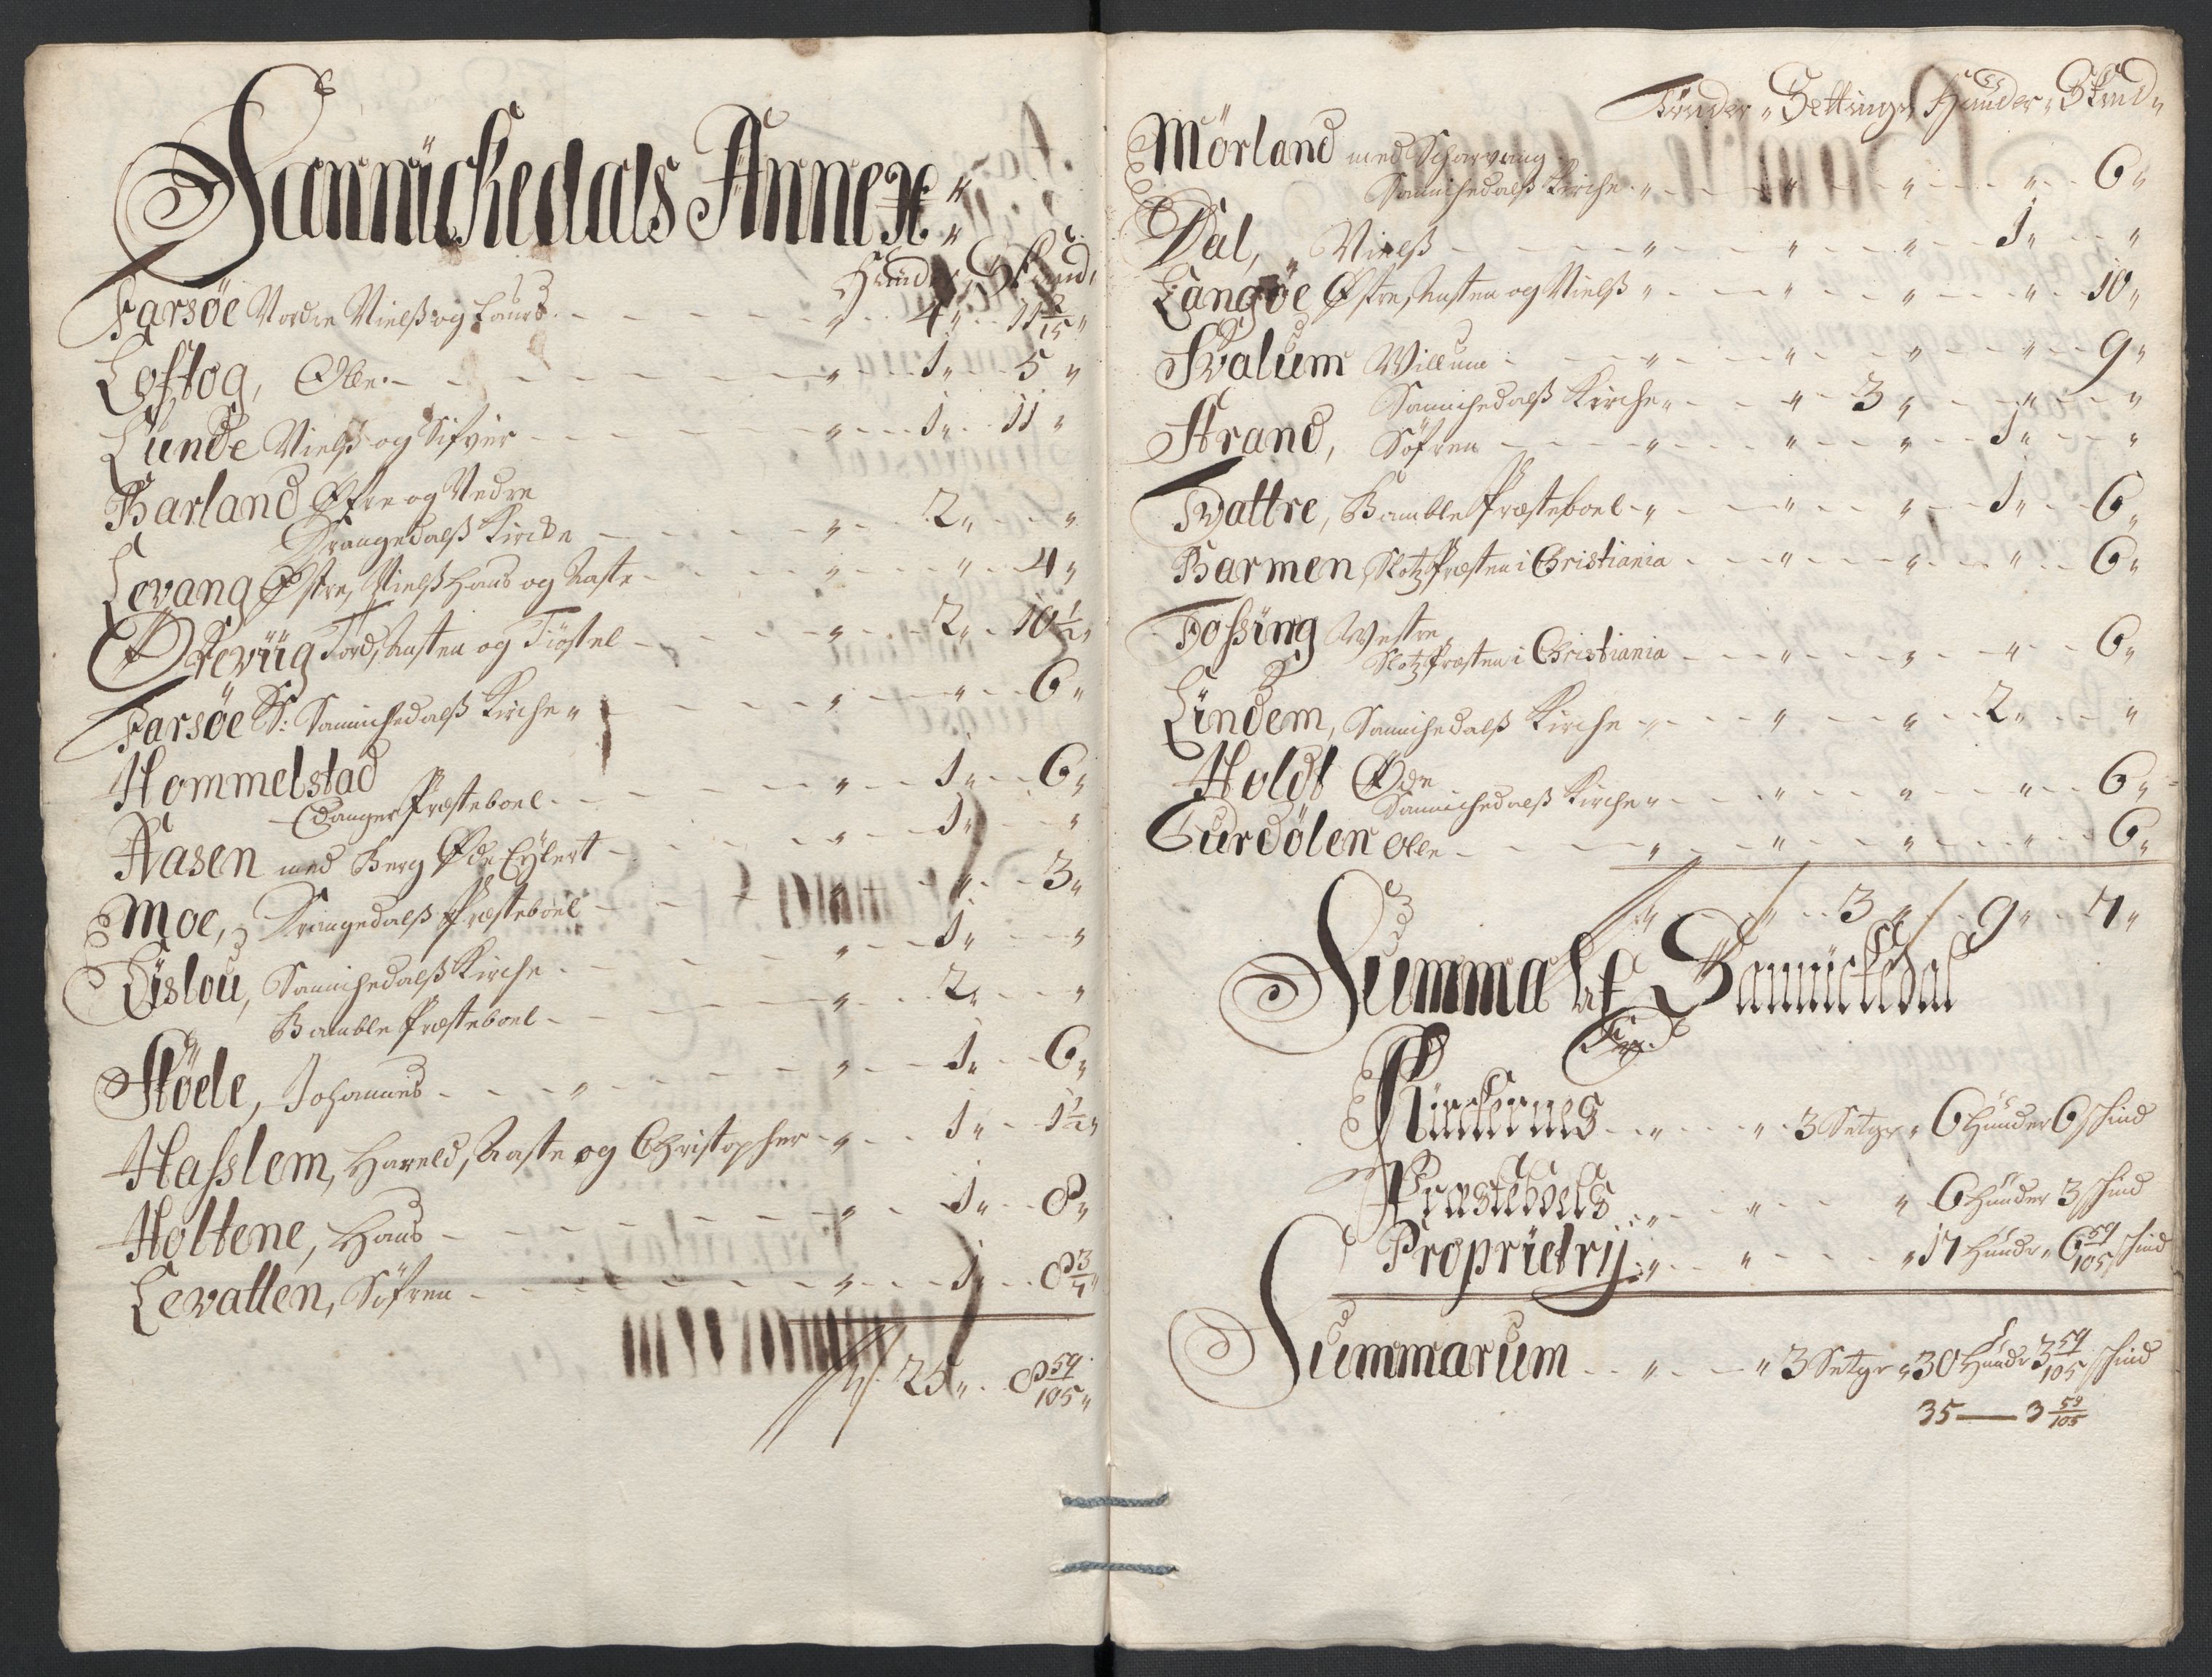 Sannickedals Annex.
Hunder, Skind,
Farsöe Nordre Nielß og Laurs - - - " - - 4 " - - 11 2/15 "
Loftog, Olle. - - - " - - 1 " - - 5 "
Lunde Nielß og Sifver - - - " - - 1 " - - 11 "
Barland Øfre og Nedre
Drangedalß Kircke - - - " - - 2 " - - "
Levang Østre, Nielß Hans og Aaste - - - " - - " - - 4 "
Ørevüg Tord, Aasten og Tiøstel - - - " - - 2 " - - 10 1/2 "
Farsöe S: Sannichedalß Kirche " - - - " - - " - - 6 "
Hommelstad
Edanger Præsteboel - - - " - - 1 " - - 6 "
Aasen med Berg Øde Eylert - - - " - - 1 " - - "
Moe, Drangedalß Præsteboel - - - " - - " - - 3 "
Lislou, Sannichedalß Kirche - - - " - - 1 " - - "
Bamble Præsteboel - - - " - - 2 " - - "
Stöele, Johannes - - - " - - 1 " - - 6 "
Hasslem, Harald, Aaste og Christopher - " - - 1 " - - 1 1/2 "
Holtene, Hans - - - " - - 1 " - - 8 "
Levatten, Söfren - - - " - - 1 " - - 8 3/7 "
25 " - 8 59/105 "
Tönder " Settinger Hunder " Skind "
Mörland med Scharvang
Sannichedalß Kirche " - - " - - " - - " - - 6 "
Dal, Nielß - - " - - " - - " - - 1 " - - "
Langöe Østre, Aasten og Nielß " - - " - - " - - " - - 10 "
Svalum Willum - - " - - " - - " - - " - - 9 "
Sannichedalß Kirche " - - " - 3 " - - " - - "
Strand, Söfren - - " - - " - - " - - 1 " - - "
Tvattre, Bamble Præsteboel - " - - " - - " - - 1 " - - 6 "
Barmen, Slotz Præsten i Christiania - - " - - " - - " - - 6 "
Fossing Westre,
Slotz Præsten i Christiania - - " - - " - - " - - 6 "
Lindem, Sannichedalß Kirche " - - " - - " - - 2 " - - "
Holdt Øde
Sannichedalß Kirche " - - " - - " - - " - - 6 "
Gurdölen Olle - - " - - " - - " - - " - - 6 "
" - - " - - 3 " - - 9 " - - 7 "
Summa af Sannickedal
Kirckernes - - " - - " - 3 Setgr " 6 Hunder 6 schind
Præstebols - - " - - " - - " 6 Hunder 3 schind
Proprietrij - - " - - " - - " 17 Hundr " 6 59/105 schind
Summarum - - " - - " 3 Setgr " 30 Hundr 3 59/105 schind
35 — 3 59/105